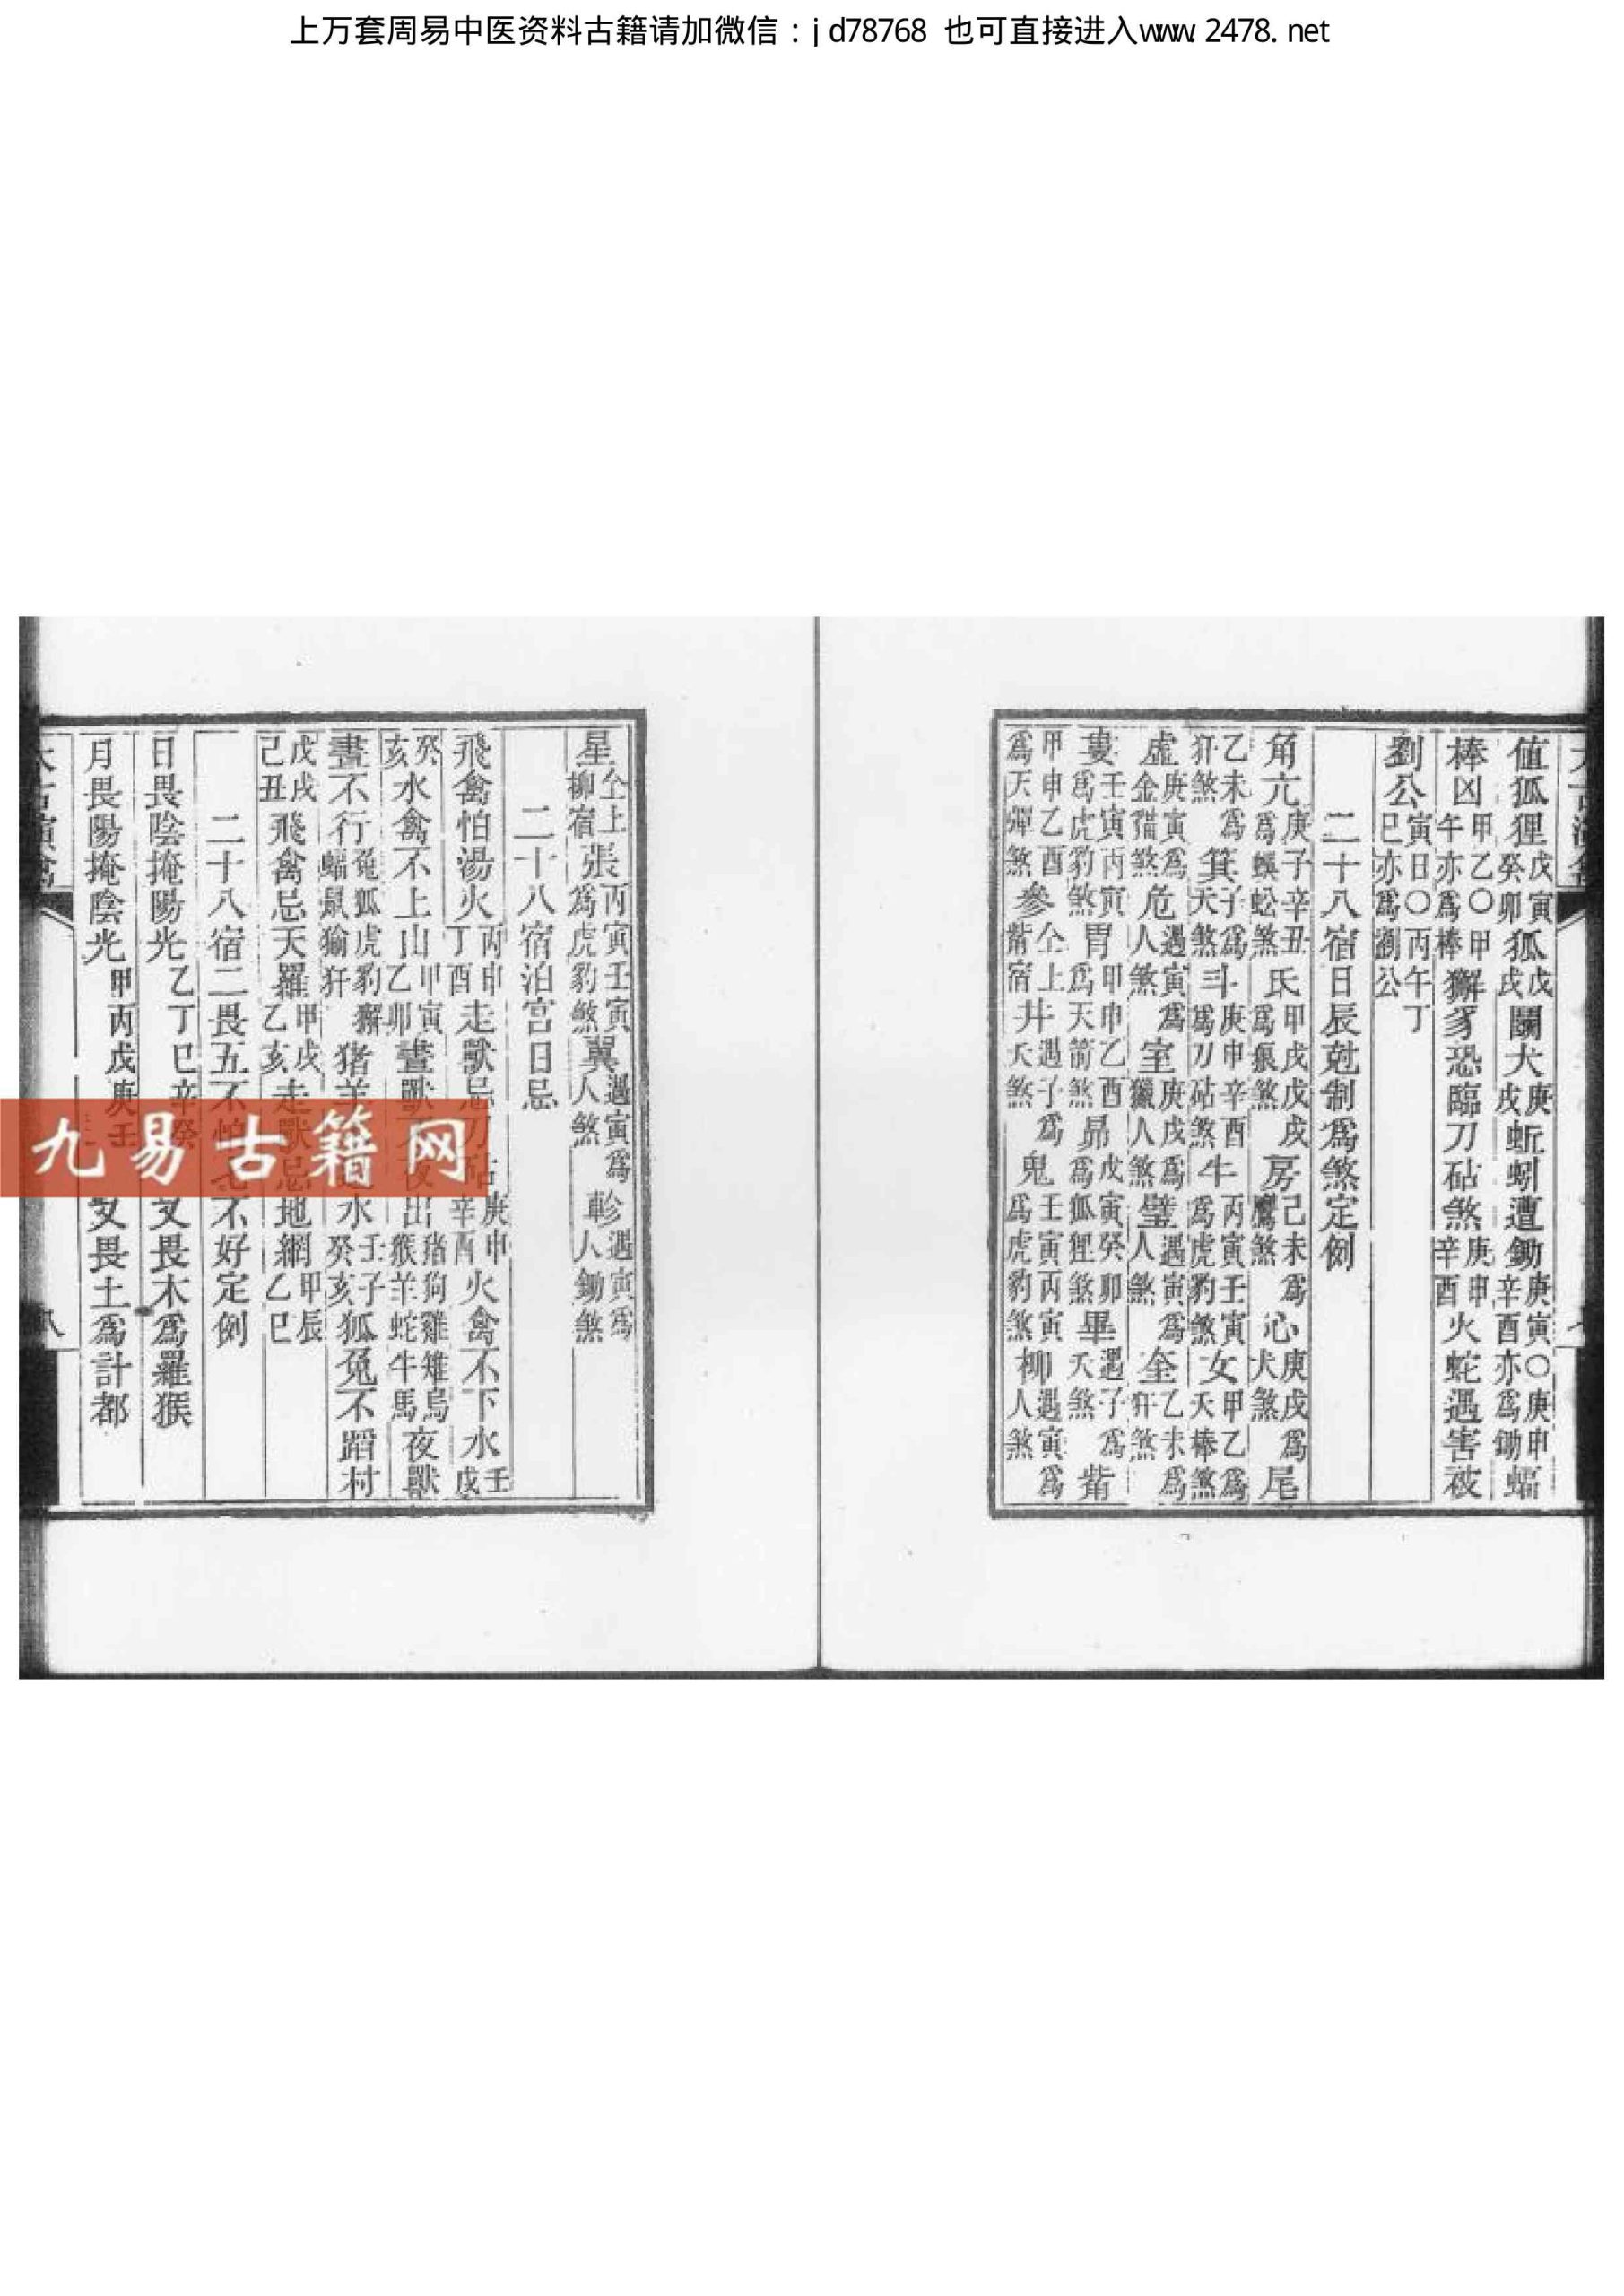 上万套周易中医资料古籍请加微信：jd78768 也可直接进入www.2478.net
值狐狸戊寅癸卯狐戊戌鬪犬庚戌蚯蚓遭鋤庚寅〇庚申辛酉亦爲鋤蝠
棒凶甲乙〇甲午亦爲棒獬豸恐臨刀砧煞庚申辛酉火蛇遇害被
劉公寅日〇丙午丁巳亦爲劉公
二十八宿日辰尅制爲煞定例
角亢庚子辛丑爲蜈蚣煞氐甲戌戊戌爲狼煞房己未爲鷹煞心庚戌爲犬煞尾
乙未爲犴煞箕子爲天煞斗庚申辛酉爲刀砧煞牛丙寅壬寅爲虎豹煞女甲乙爲天棒煞
虛庚寅爲金猫煞危遇寅爲人煞室庚戌爲獵人煞璧遇寅爲人煞奎乙未爲犴煞
婁壬寅丙寅爲虎豹煞胃甲申乙酉爲天箭煞昴戊寅癸卯爲狐狸煞畢遇子爲天煞觜
甲申乙酉爲天彈煞參仝上觜宿井遇子爲天煞鬼壬寅丙寅爲虎豹煞柳遇寅爲人煞
星仝上柳宿張丙寅壬寅爲虎豹煞翼遇寅爲人煞軫遇寅爲人鋤煞
二十八宿泊宮日忌
飛禽怕湯火丙申丁酉走獸忌刀砧庚申辛酉火禽不下水壬戊
癸亥水禽不上山甲寅乙卯晝獸不夜出猪狗雞雉烏猴羊蛇牛馬夜獸
晝不行兔狐虎豹獬蝠鼠㺄犴猪羊水壬子癸亥狐兔不蹈村
戊戌己丑飛禽忌天羅甲戌乙亥走獸忌地網甲辰乙巳
二十八宿二畏五不怕七不好定例
日畏陰掩陽光乙丁巳辛癸又畏木爲羅猴
月畏陽掩陰光甲丙戊庚壬又畏土爲計都
九易古籍网